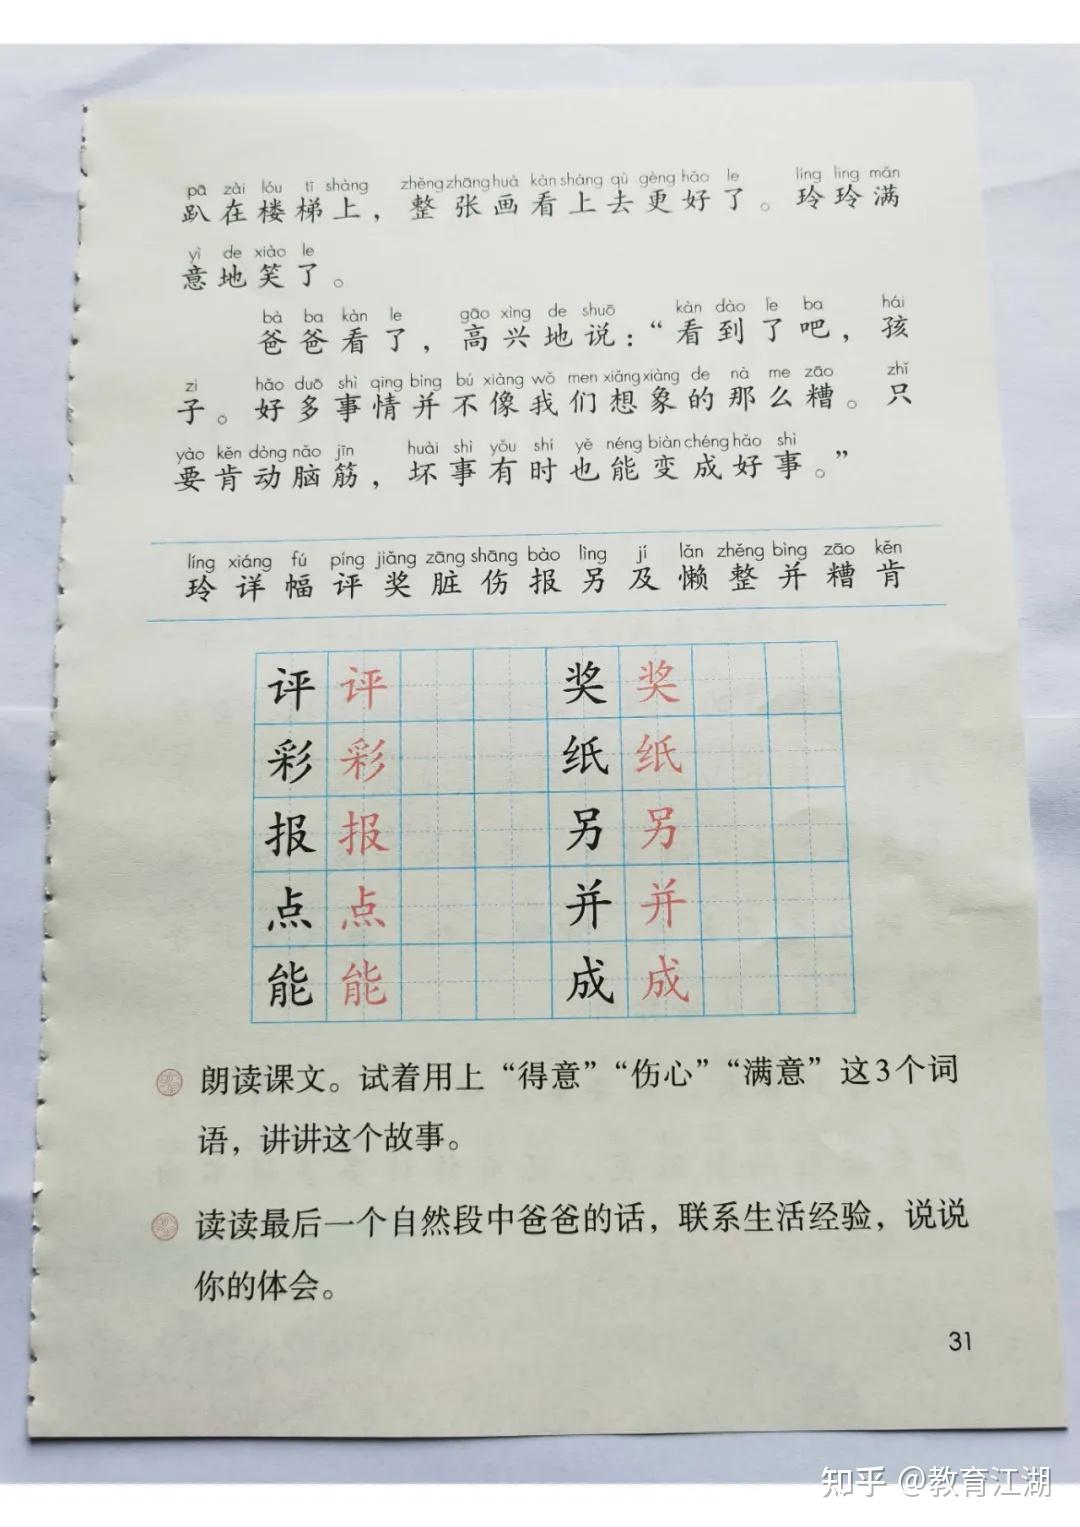 pā zài lóu tī shàng zhěng zhāng huà kàn shàng qù gèng hǎo le líng ling mǎn
趴在楼梯上，整张画看上去更好了。玲玲满
yì de xiào le
意地笑了。
bà ba kàn le gāo xìng de shuō kàn dào le ba hái
爸爸看了，高兴地说：“看到了吧，孩
zi hǎo duō shì qing bìng bú xiàng wǒ men xiǎng xiàng de nà me zāo zhǐ
子。好多事情并不像我们想象的那么糟。只
yào kěn dòng nǎo jīn huài shì yǒu shí yě néng biàn chéng hǎo shì
要肯动脑筋，坏事有时也能变成好事。”
líng xiáng fú píng jiǎng zāng shāng bào lìng jí lǎn zhěng bìng zāo kěn
玲 详 幅 评 奖 脏 伤 报 另 及 懒 整 并 糟 肯
评 评 奖 奖
彩 彩 纸 纸
报 报 另 另
点 点 并 并
能 能 成 成
朗读课文。试着用上“得意”“伤心”“满意”这3个词
语，讲讲这个故事。
读读最后一个自然段中爸爸的话，联系生活经验，说说
你的体会。
31
知乎 @教育江湖